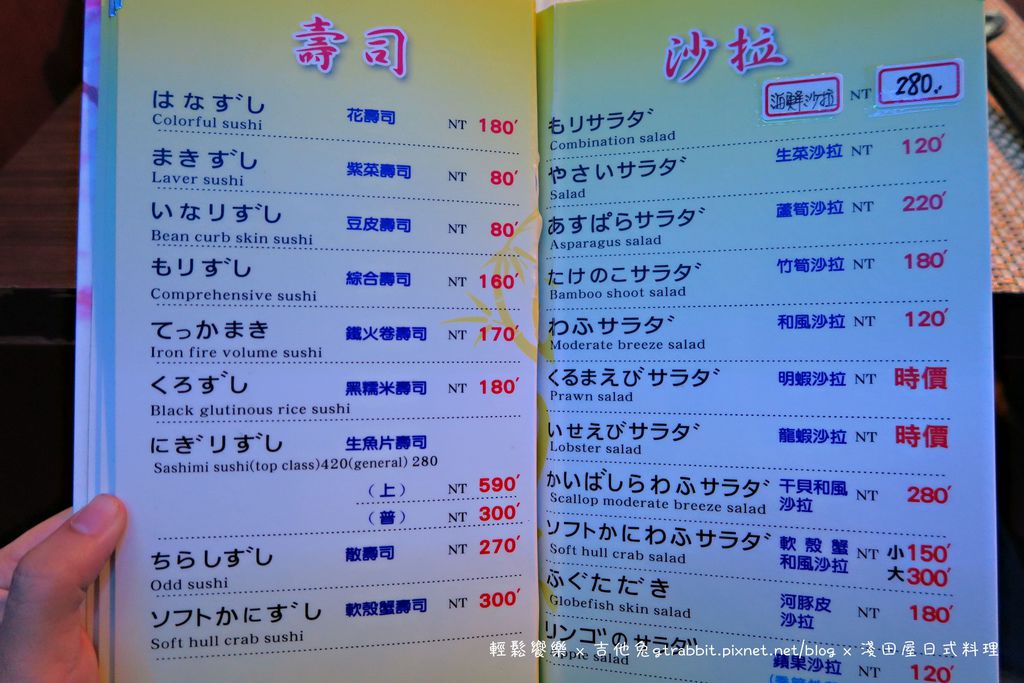 壽司
はなずし 花壽司 NT 180
Colorful sushi
まきずし 紫菜壽司 NT 80
Laver sushi
いなりずし 豆皮壽司 NT 80
Bean curb skin sushi
もりずし 綜合壽司 NT 160
Comprehensive sushi
てっかまき 鐵火卷壽司 NT 170
Iron fire volume sushi
くろずし 黑糯米壽司 NT 180
Black glutinous rice sushi
にぎりずし 生魚片壽司
Sashimi sushi(top class)420(general) 280
(上) NT 590
(普) NT 300
ちらしずし 散壽司 NT 270
Odd sushi
ソフトかにずし 軟殼蟹壽司 NT 300
Soft hull crab sushi
沙拉
もりサラダ 海鮮沙拉 NT 280.
Combination salad
やさいサラダ 生菜沙拉 NT 120
Salad
あすぱらサラダ 蘆筍沙拉 NT 220
Asparagus salad
たけのこサラダ 竹筍沙拉 NT 180
Bamboo shoot salad
わふサラダ 和風沙拉 NT 120
Moderate breeze salad
くるまえびサラダ 明蝦沙拉 NT 時價
Prawn salad
いせえびサラダ 龍蝦沙拉 NT 時價
Lobster salad
かいばしらわふサラダ 干貝和風沙拉 NT 280
Scallop moderate breeze salad
ソフトかにわふサラダ 軟殼蟹和風沙拉 NT 小150
大300
Soft hull crab salad
ふぐたたき 河豚皮沙拉 NT 180
Globefish skin salad
リンゴのサラダ 蘋果沙拉 NT 120
輕鬆饗樂 x 吉他兔girabbit.pixnet.net/blog x 淺田屋日式料理